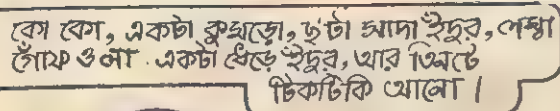 কো কো, একটা কুমড়ো, ছ'টা সাদা ইঁদুর, লম্বা
গোঁফ ওলা একটা ধেড়ে ইঁদুর, আর তিনটে
টিকটিকি আনো।